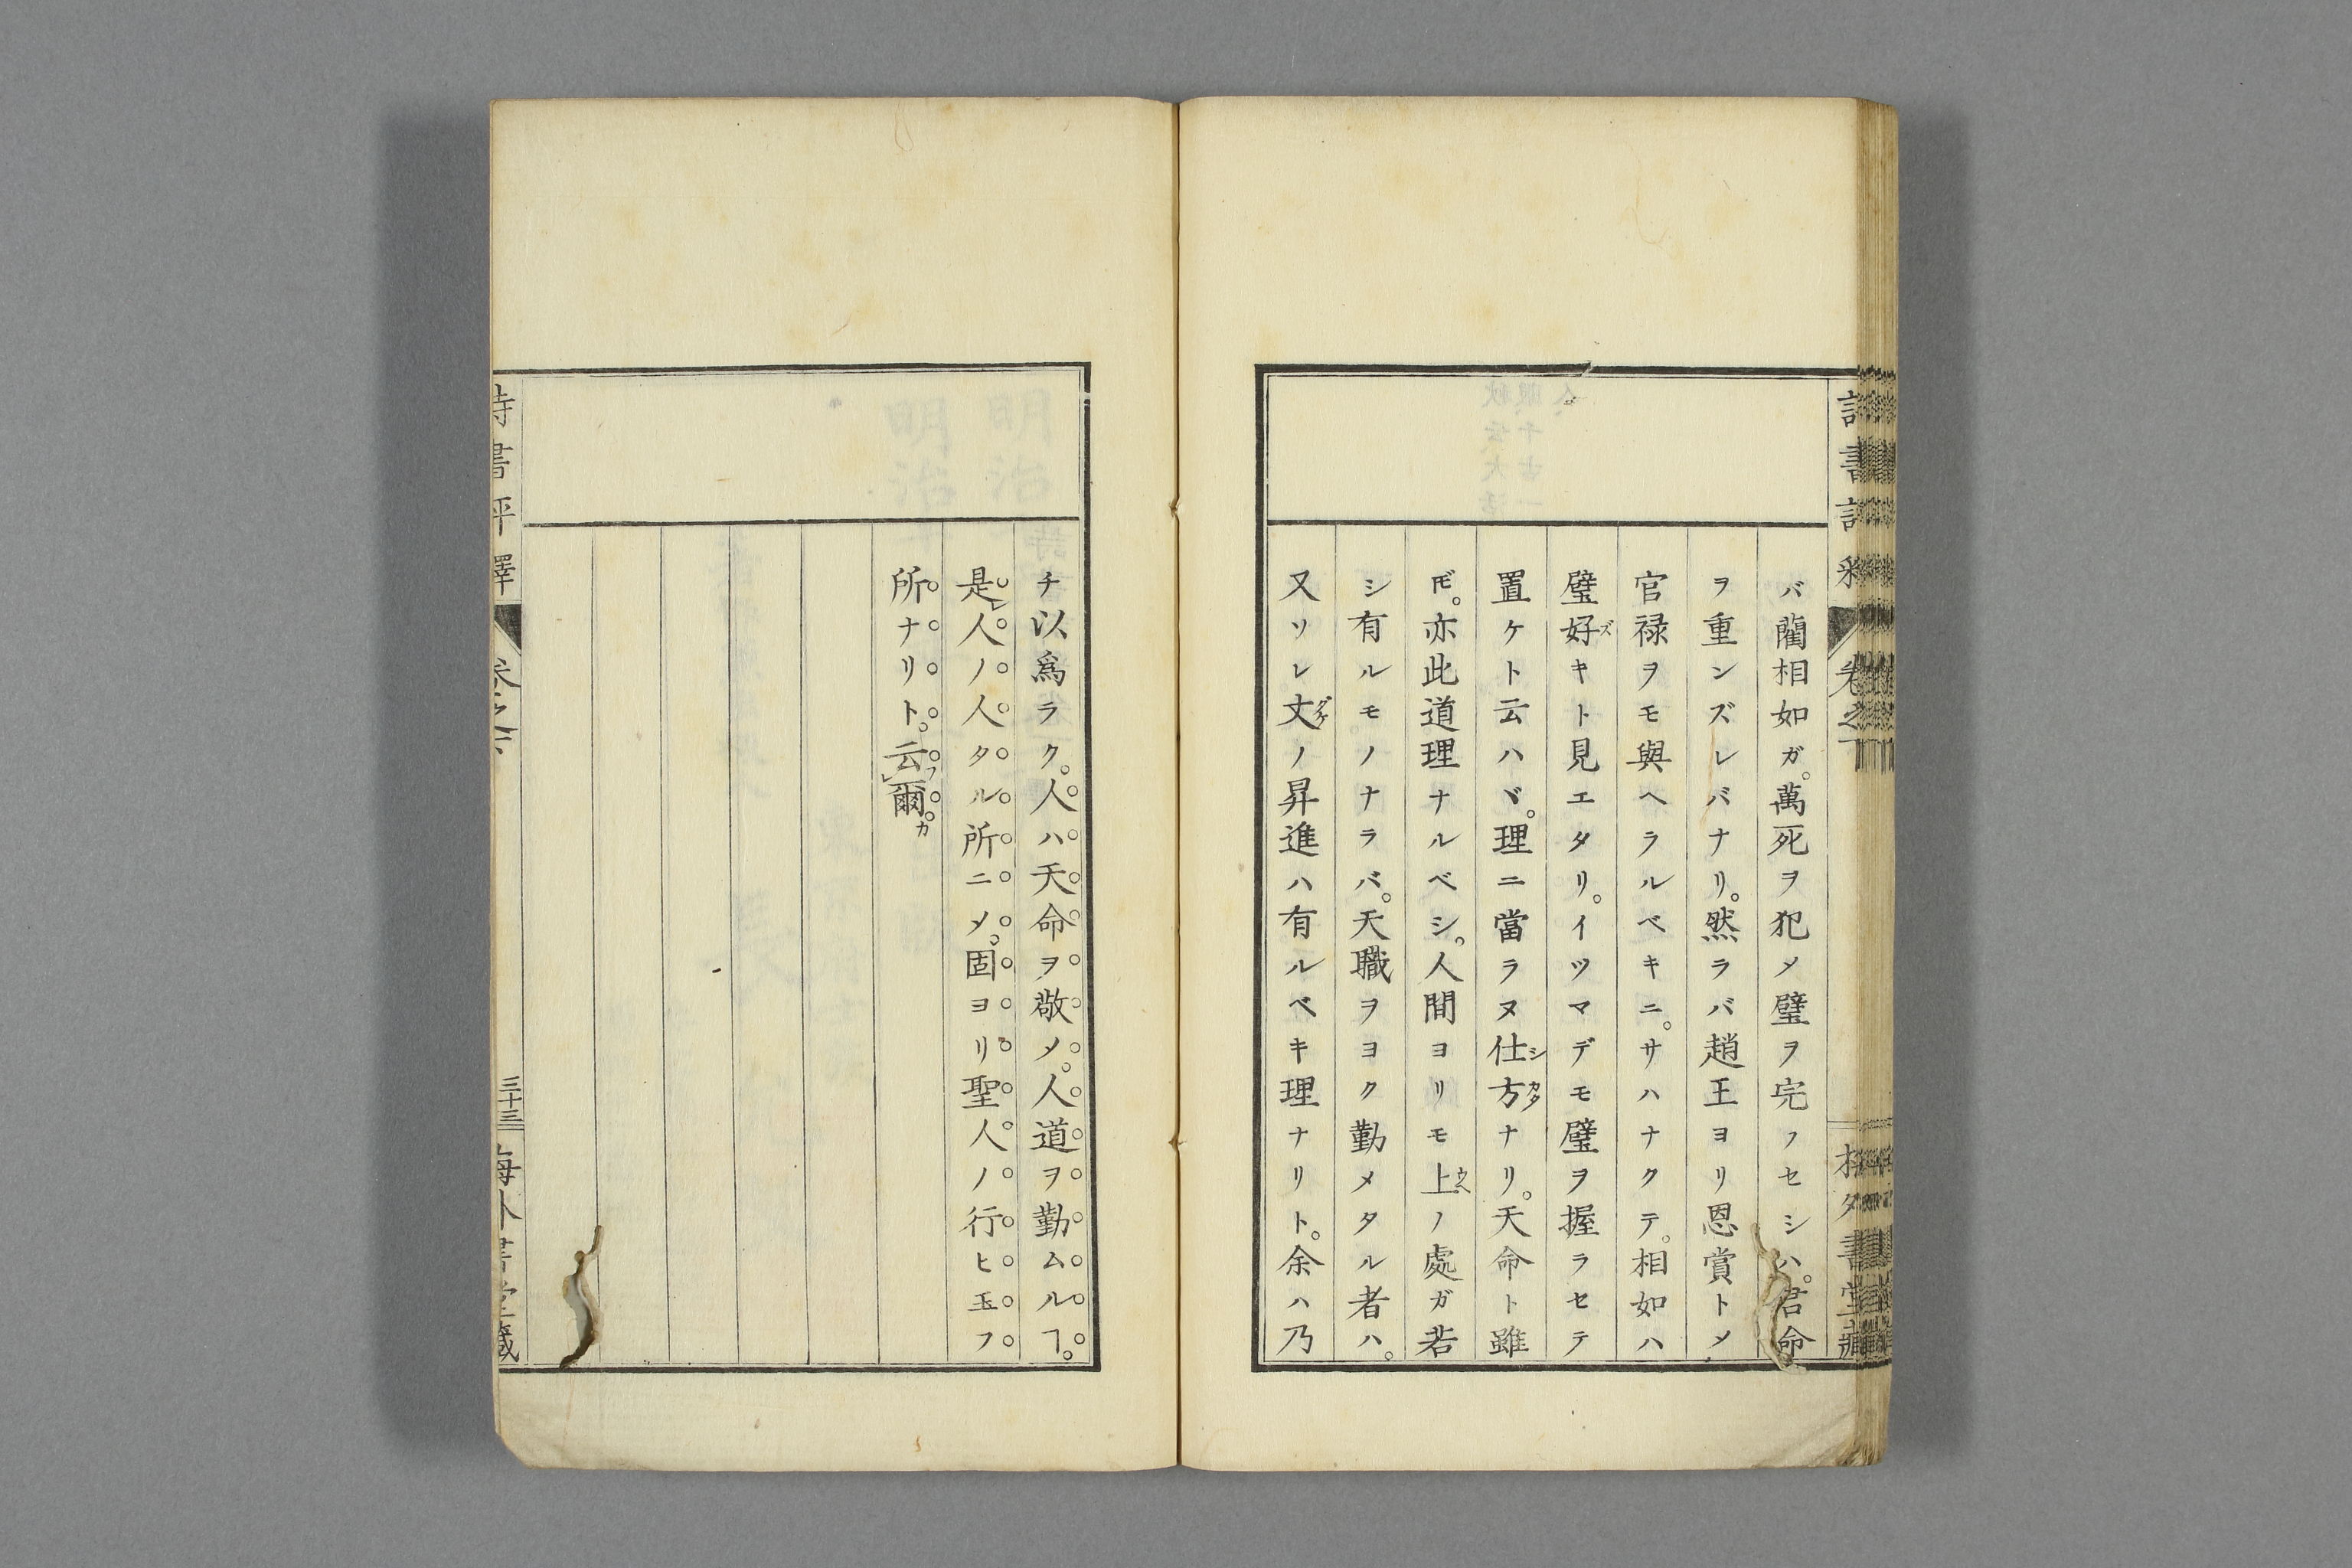 バ藺相如ガ。萬死ヲ犯〆璧ヲ完フセシハ。君命
ヲ重ンズレバナリ。然ラバ趙王ヨリ恩賞ト〆
官禄ヲモ與ヘラルベキニ。サハナクテ。相如ハ
璧好ズキト見エタリ。イツマデモ璧ヲ握ラセテ
置ケト云ハヾ。理ニ當ラヌ仕シ方カタナリ。天命ト雖
𪜈。亦此道理ナルベシ。人間ヨリモ上ウヘノ處ガ若
シ有ルモノナラバ。天職ヲヨク勤メタル者ハ。
又ソレ丈ダケノ昇進ハ有ルベキ理ナリト。余ハ乃
チ以爲ラク。人ハ天命ヲ敬〆。人道ヲ勤ムルヿ。
是レ人ノ人タル所ニ〆。固ヨリ聖人ノ行ヒ玉フ
所ナリト。云フレ爾カ
詩書評釋
卷之下
三十三
書堂藏